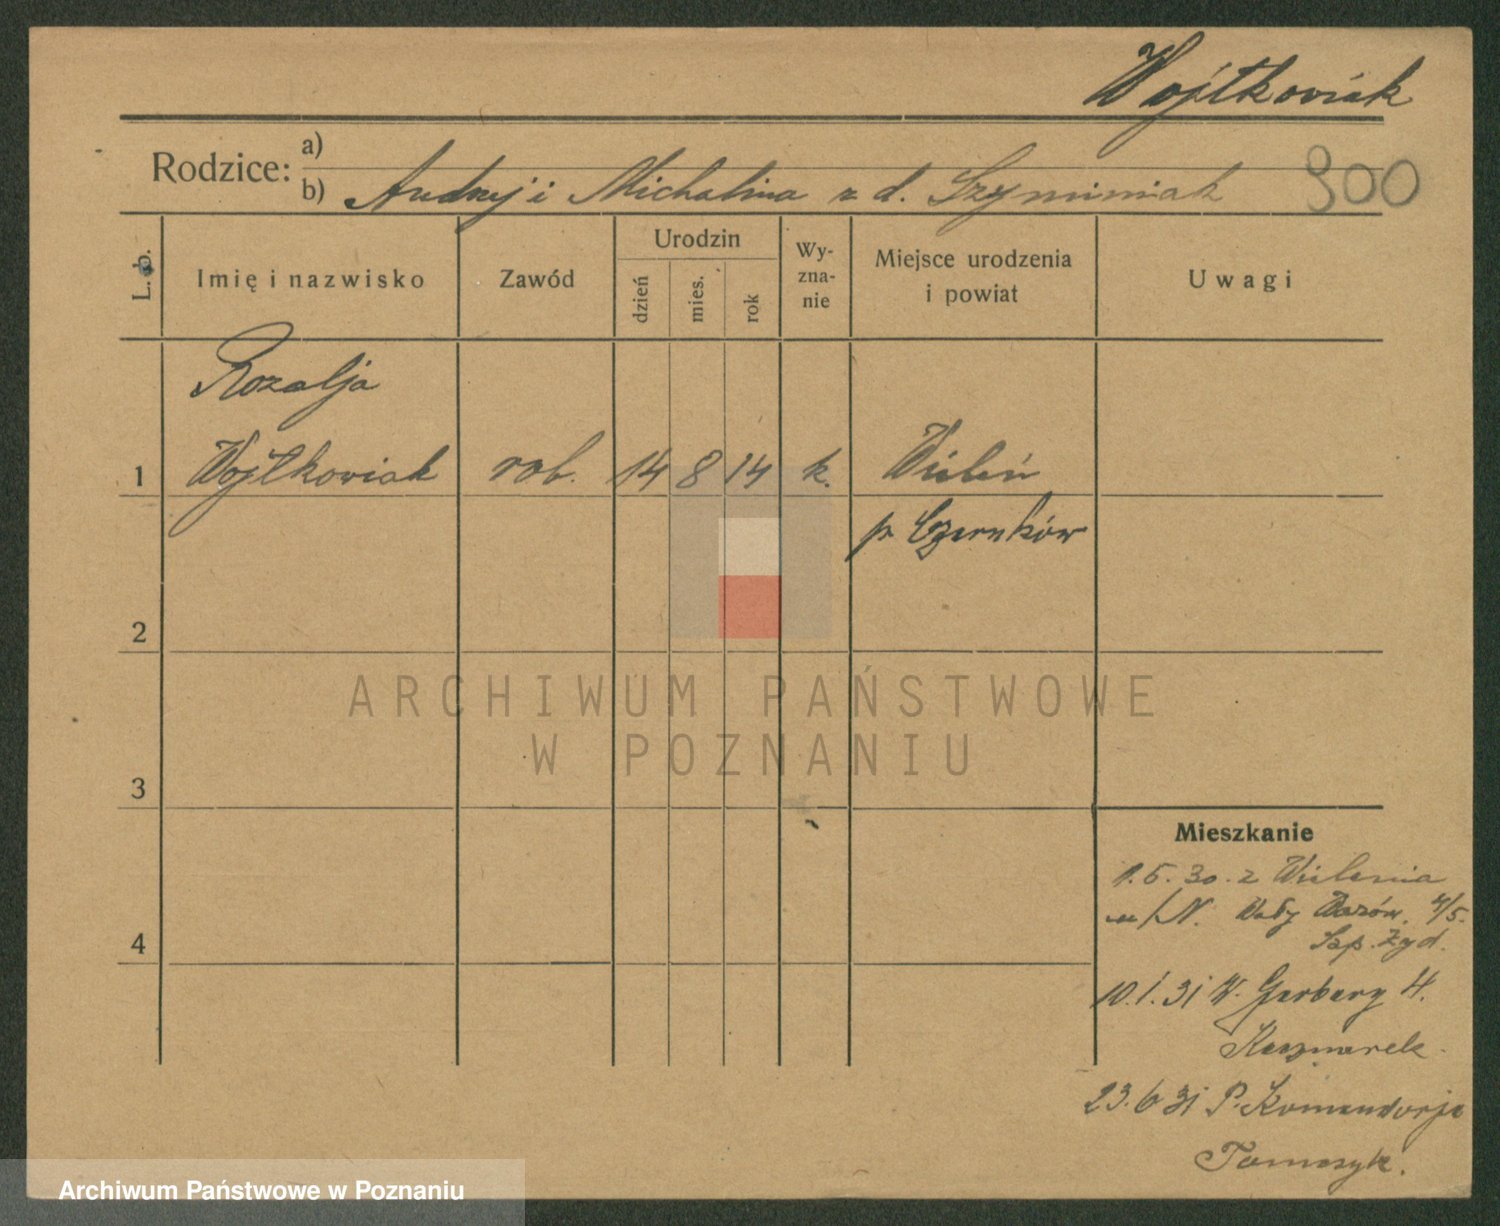 Wojtkowiak
Rodzice: a)
b) Andrzej i Michalina z d. Szyminiak
900
L. b.
Imię i nazwisko
Zawód
Urodzin
dzień
mies.
rok
Wy-
zna-
nie
Miejsce urodzenia
i powiat
Uwagi
Rozalja
1 Wojtkowiak rob. 14 8 14 k. Wieleń
p. Czarnków
2
3
4
ARCHIWUM PAŃSTWOWE
W POZNANIU
Mieszkanie
1.5.30. z Wielenia
n/N. Wały Wazów. 4/5.
Szp. Żyd.
10.1.31 W. Garbary 4.
Kaczmarek.
23.6 31 P. Komandorja
Tomczyk.
Archiwum Państwowe w Poznaniu